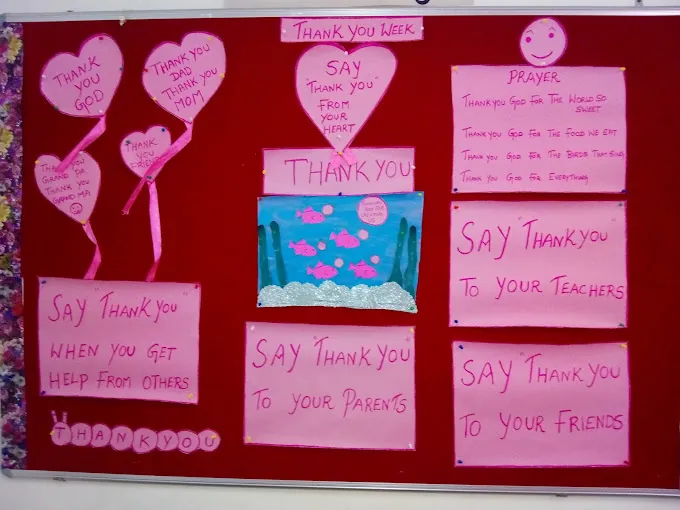 THANK YOU WEEK
THANK
YOU
GOD
THANK YOU
DAD
THANK YOU
MOM
THANK
YOU
FRIENDS
THANK YOU
GRAND PA
THANK YOU
GRAND MA
SAY "THANK YOU"
WHEN YOU GET
HELP FROM OTHERS
THANKYOU
SAY
"THANK YOU"
FROM
YOUR
HEART
THANK YOU
SAY "THANK YOU
TO YOUR PARENTS
PRAYER
THANK YOU GOD FOR THE WORLD SO
SWEET
THANK YOU GOD FOR THE FOOD WE EAT
THANK YOU GOD FOR THE BIRDS THAT SING
THANK YOU GOD FOR EVERYTHING
SAY "THANK YOU"
TO YOUR TEACHERS
SAY "THANK YOU
TO YOUR FRIENDS